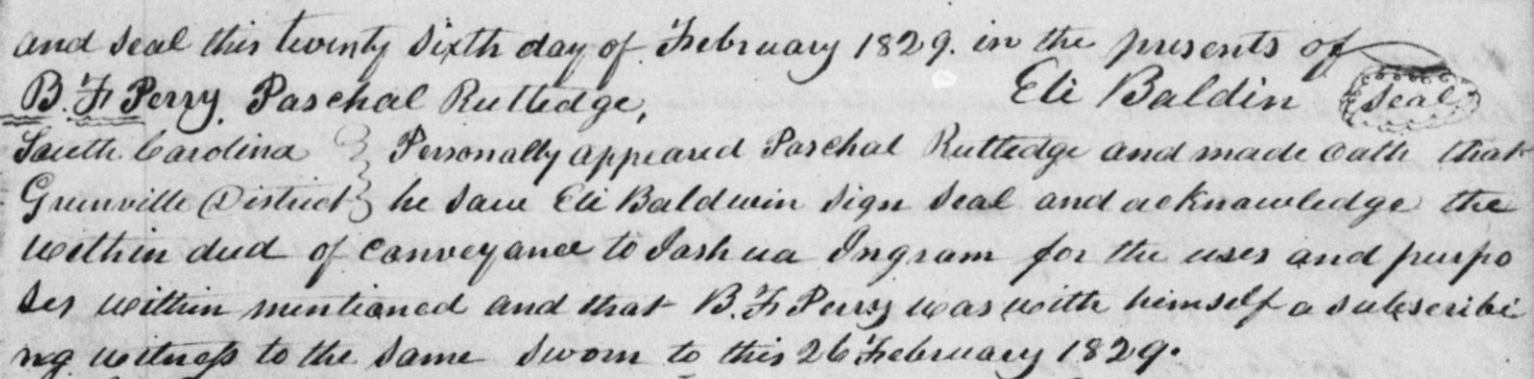 and seal this twenty sixth day of February 1829. in the presents of
B. F. Perry, Paschal Ruttedge, Eli Baldin Seal
South Carolina } Personally appeared Paschal Ruttedge and made oath that
Grenville District } he saw Eli Baldwin sign seal and acknowledge the
within deed of conveyance to Joshua Ingram for the uses and purpo
ses within mentioned and that B. F. Perry was with himself a subscribi
ng witness to the same sworn to this 26 February 1829.